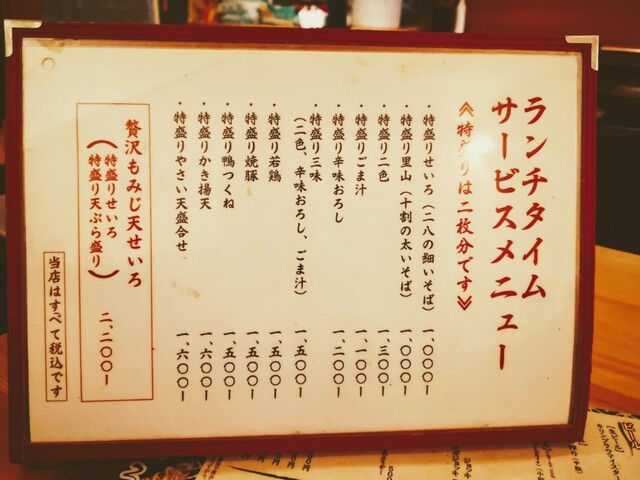 ランチタイム
サービスメニュー
≪特盛りは二枚分です≫
・特盛りせいろ（二八の細いそば）一、〇〇〇ー
・特盛り里山（十割の太いそば）一、〇〇〇ー
・特盛り二色 一、三〇〇ー
・特盛りごま汁 一、一〇〇ー
・特盛り辛味おろし 一、二〇〇ー
・特盛り三味
（二色、辛味おろし、ごま汁）一、五〇〇ー
・特盛り若鶏 一、五〇〇ー
・特盛り焼豚 一、五〇〇ー
・特盛り鴨つくね 一、五〇〇ー
・特盛りかき揚天 一、六〇〇ー
・特盛りやさい天盛合せ 一、六〇〇ー
贅沢もみじ天せいろ
（特盛りせいろ
特盛り天ぷら盛り） 二、二〇〇ー
当店はすべて税込です